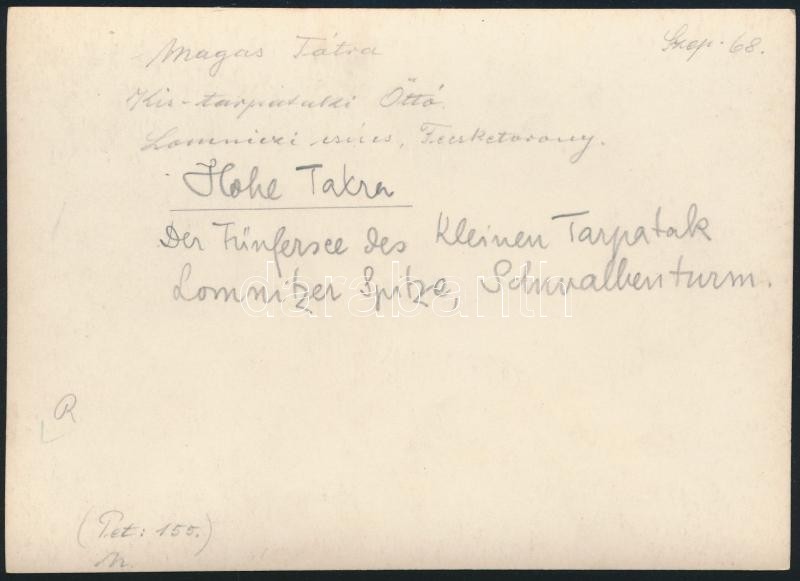 Magas Tátra
Szep. 68.
Kis-tarpataki Öttó.
Lomniczi csúcs, Fecsketorony.
Hohe Tatra
Der Fünfersee des Kleinen Tarpatak
Lomnitzer Spitze, Schwalbenturm.
darabanth
R
(Pet: 155.)